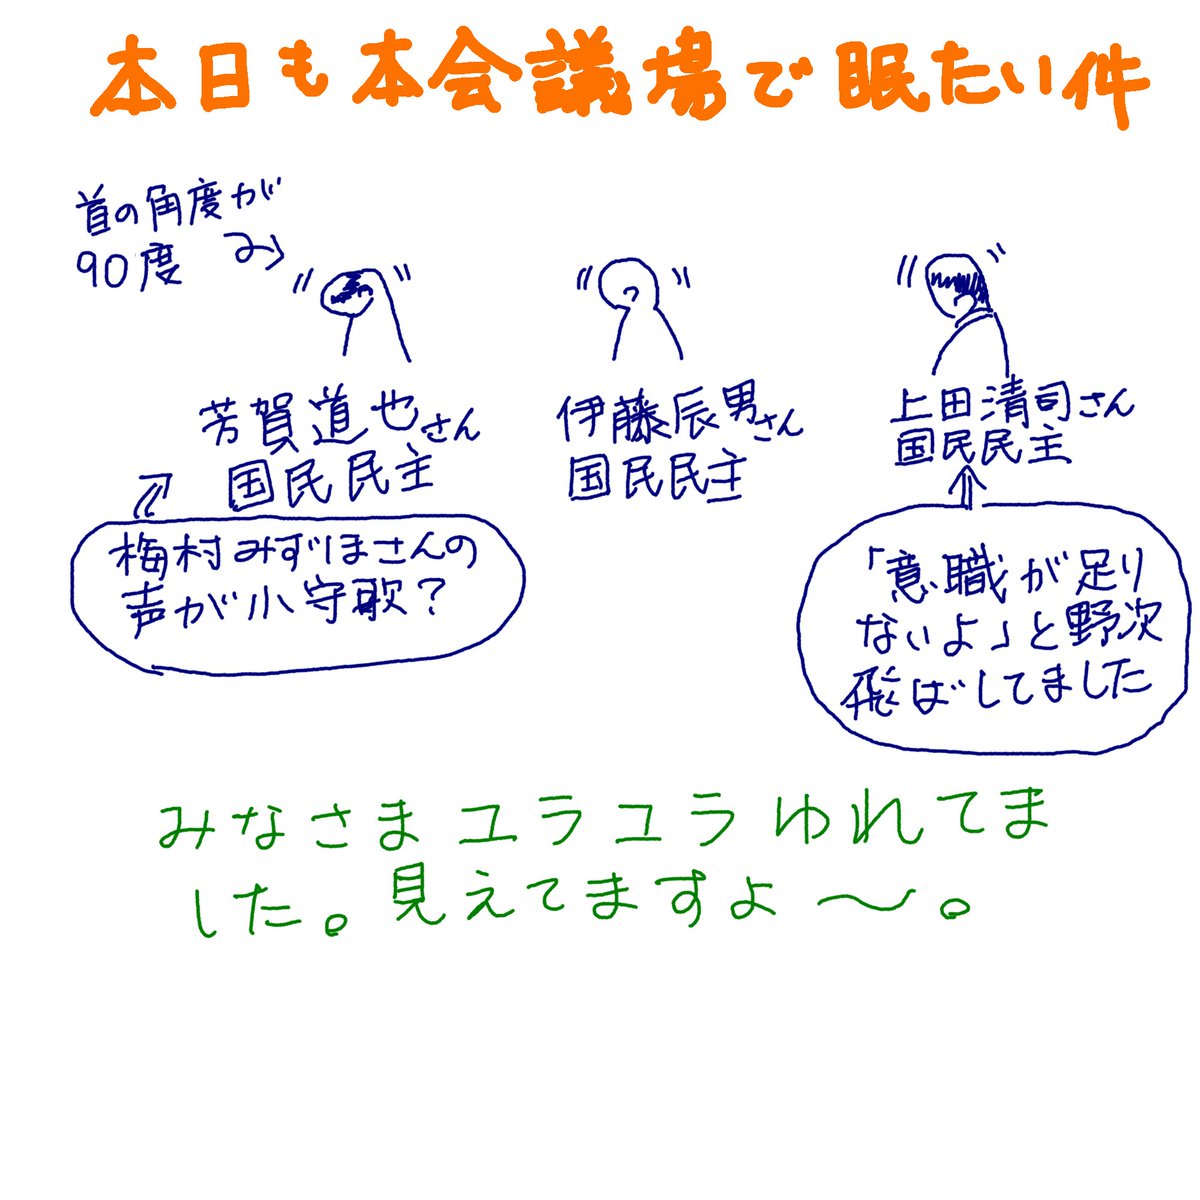 本日も本会議場で眠たい件
首の角度が
90度
芳賀道也さん
国民民主
梅村みずほさんの
声が小守歌？
伊藤辰男さん
国民民主
上田清司さん
国民民主
「意職が足り
ないよ」と野次
飛ばしてました
みなさまユラユラゆれてま
した。見えてますよ〜。